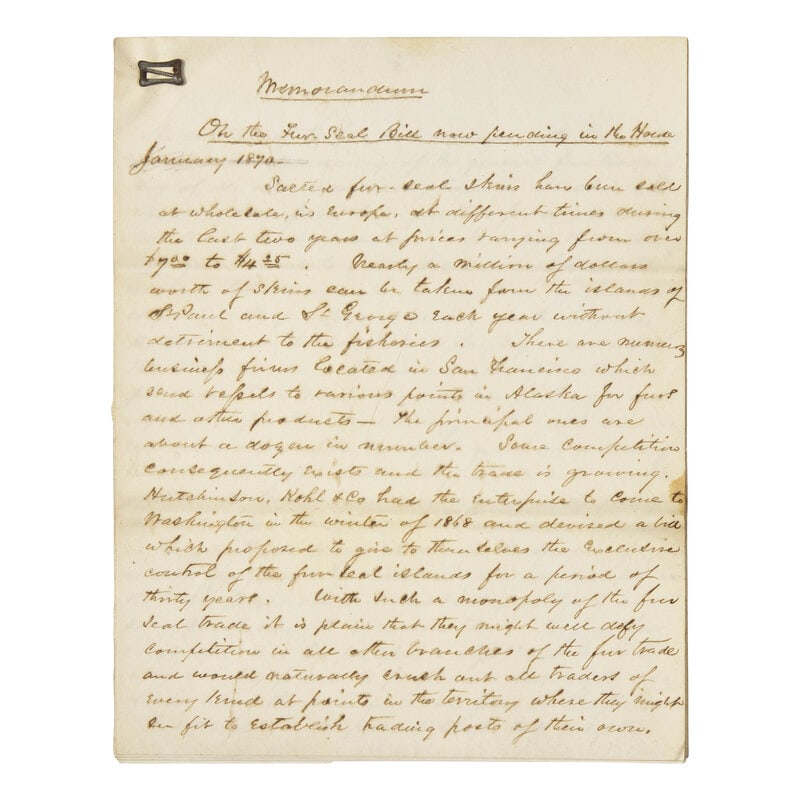 Memorandum
On the Fur-Seal Bill now pending in the House
January 1870.
Salted fur-seal skins have been sold
at wholesale, in Europe, at different times during
the last two years at prices varying from over
$7.00 to $4.25. Nearly a million of dollars
worth of skins can be taken from the islands of
St Paul and St George each year without
detriment to the fisheries. There are
business firms located in San Francisco which
send vessels to various points in Alaska for furs
and other products — The principal ones are
about a dozen in number. Some competition
consequently exists and the trade is growing.
Hutchinson, Kohl & Co had the enterprise to come to
Washington in the winter of 1868 and devised a bill
which proposed to give to themselves the exclusive
control of the fur-seal islands for a period of
thirty years. With such a monopoly of the fur
seal trade it is plain that they might well defy
competition in all other branches of the fur trade
and would naturally crush out all traders of
every kind at points in the territory where they might
see fit to establish trading posts of their own.